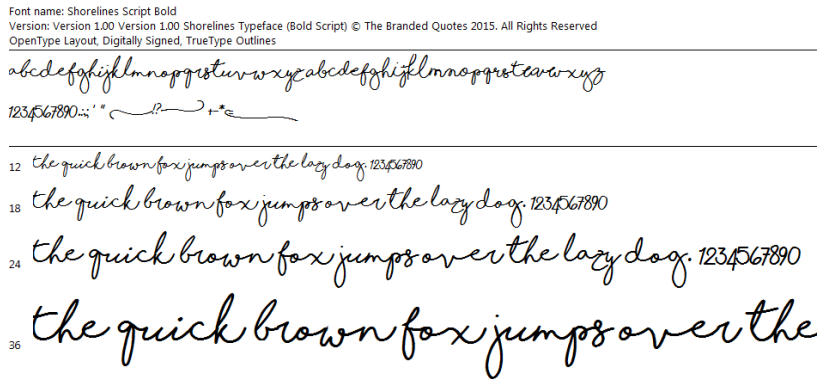 Font name: Shorelines Script Bold
Version: Version 1.00 Version 1.00 Shorelines Typeface (Bold Script) © The Branded Quotes 2015. All Rights Reserved
OpenType Layout, Digitally Signed, TrueType Outlines
abcdefghijklmnopqrstuvwxyz abcdefghijklmnopqrstuvwxyz
1234567890.:,; ' " (!?) +-*=
12 the quick brown fox jumps over the lazy dog. 1234567890
18 the quick brown fox jumps over the lazy dog. 1234567890
24 the quick brown fox jumps over the lazy dog. 1234567890
36 the quick brown fox jumps over the